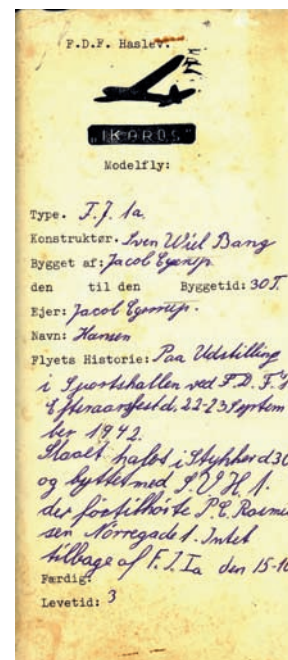 F.D.F. Haslev.
"IKAROS"
Modelfly:
Type. F.J. 1a.
Konstruktør. Sven Wiel Bang
Bygget af: Jacob
den til den Byggetid: 30 T.
Ejer: Jacob
Navn: Hansen
Flyets Historie: Paa Udstilling
i Sportshallen ved F.D.F.s
Efteraarsfest d. 22-23 Septem
ber 1942.
halet i Stykker d 30
og byttet med S.V.H. 1.
der før tilhørte P.C. Rasmus
sen Nörregade 1. Intet
tilbage af F.J. Ia den 15-10
Færdig:
Levetid: 3